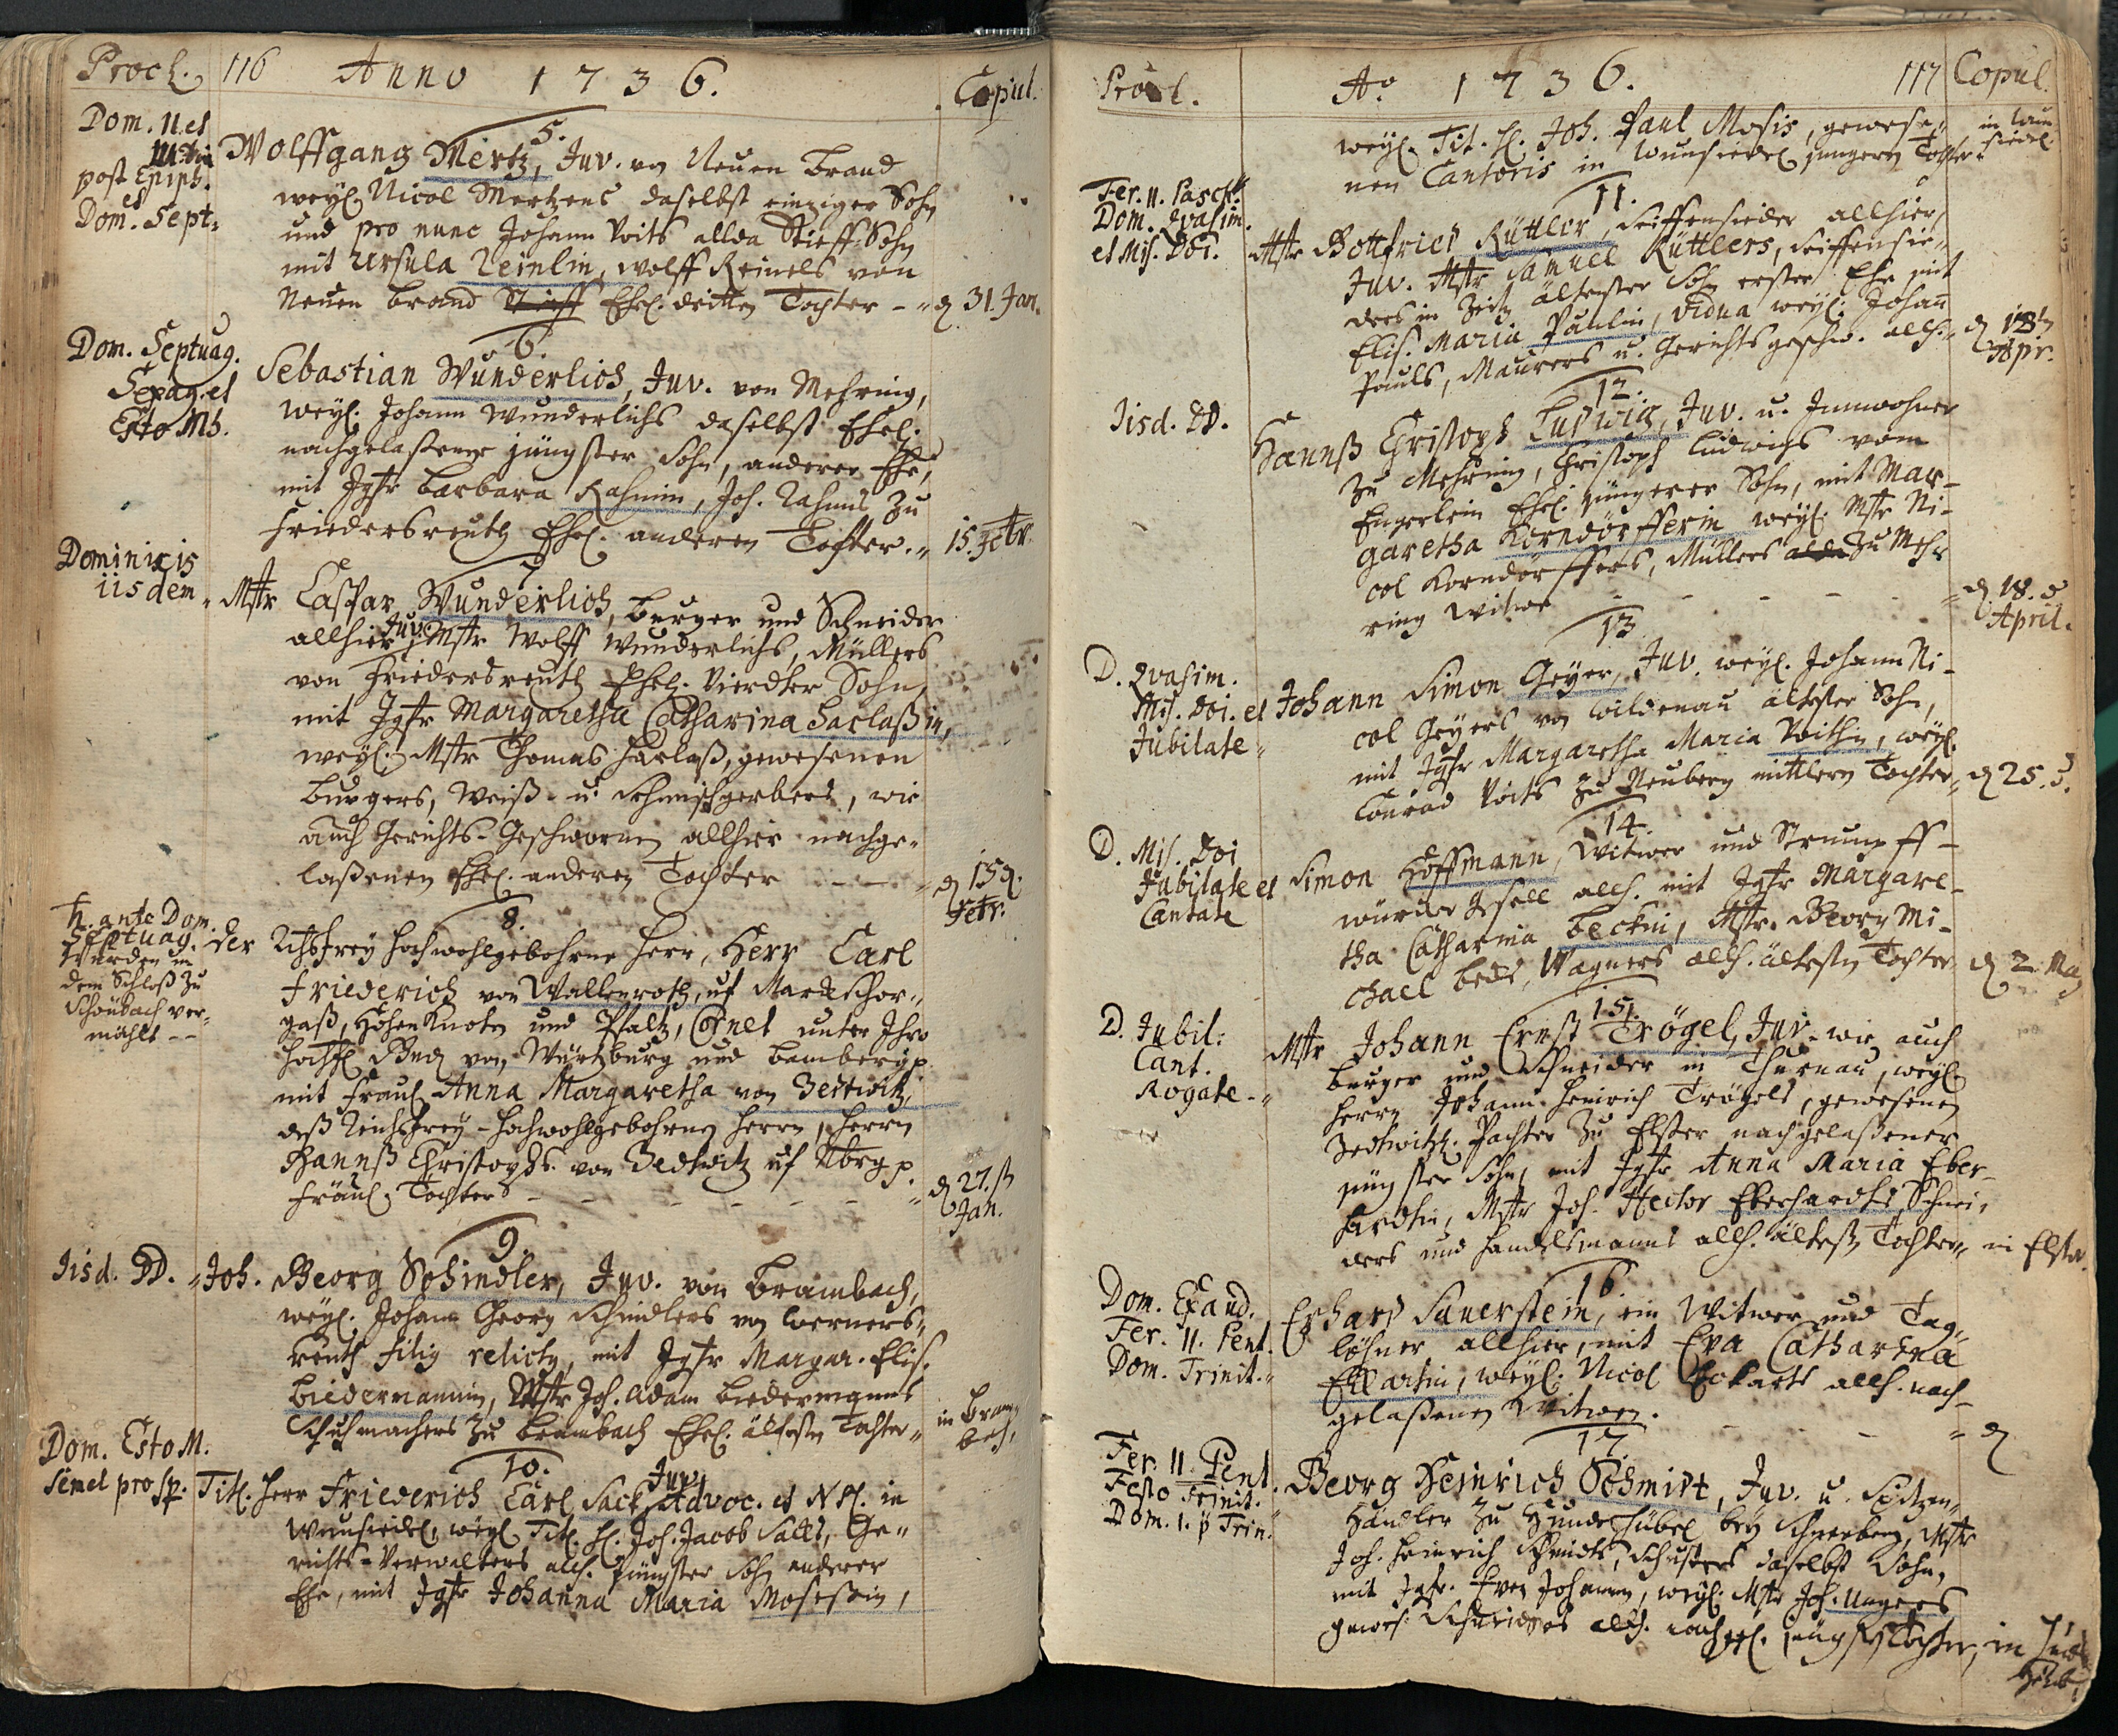 Procl. 116 Anno 1736. Copul.
Dom. II. et
III.
post Epiph.
et
Dom. Sept.
5.
Wolffgang Mertz, Juv. von Neuen Brand
weyl. Nicol Mertzens daselbst einziger Sohn
und pro nunc Johann Voits allda Stieff-Sohn
mit Ursula Reinlin, Wolff Reinels von
Neuen Brand Stieff Ehel. dritten Tochter - d 31. Jan.
Dom. Septuag.
Sexag. et
Esto Mh.
6.
Sebastian Wunderlich, Juv. von Mehring,
weyl. Johann Wunderlichs daselbst Ehel.
nachgelaßener jüngster Sohn, anderer Ehe,
mit Jgfr Barbara Rahmin, Joh. Rahms zu
Friedersreuth Ehel. anderen Tochter. 15.
Dominicis
iisdem
7
Mstr Caspar Wunderlich, Burger und Schneider
allhier, Juv. Mstr Wolff Wunderlichs, Müllers
von Friedersreuth Ehel. Vierdter Sohn,
mit Jgfr Margaretha Catharina Harlaßin,
weyl. Mstr Thomas Harlaß, gewesenen
Burgers, Weiß- u. Sehmischgerbers, wie
auch Gerichts-Geschwornen allhier nachge-
laßenen Ehel. anderen Tochter - - d 15.
Febr.
ante Dom.
Septuag.
wurden in
dem Schloß zu
Schönbach ver-
mählt - -
8.
der Rchsfrey Hochwohlgebohrne Herr, Herr Carl
Friederich von Wallenroth, uf Marckschor-
gaß, Hohen Knoten und Pfaltz, Cornet unter Ihro
Hochfl. Gnd. von Würtzburg und Bamberg p
mit Fräul. Anna Margaretha von Zettwitz,
deß Reichsfrey-Hochwohlgebohrnen Herrn, Herrn
Hannß Christophs von Zedtwitz uf Nbrg p.
Fräul. Tochter - - - - d 27.
Jan.
9.
Iisd. DD. Joh. Georg Schindler, Juv. von Brambach,
weyl. Johann Georg Schindlers von Werners-
reuth filig relictg, mit Jgfr Margar. Elis.
Biedermannin, Mstr Joh. Adam Biedermanns
Schuhmachers zu Brambach Ehel. ältesten Tochter in Bram-
bach,
Dom. Esto M.
semel pro sp.
10.
Titl. Herr Friederich Carl Sack, Juv. Advoc. et NPl. in
Wunsiedel, weyl. Titl. H. Joh. Jacob Sacks, Ge-
richts-Verwalters allh. jüngster Sohn anderer
Ehe, mit Jgfr Johanna Maria Moseßin,
Procl. Ao. 1736. 117 Copul.
weyl. Tit. H. Joh. Paul Mosis, gewese- in Wun-
nen Cantoris in Wunsiedel jüngern Tochter. siedel.
Fer. II. Pasch.
Dom. Qvasim.
et Mis. Doi.
11.
Mstr Gottfried Rüttler, Seiffensieder allhier,
Juv. Mstr Samuel Rüttlers, Seiffensie-
ders in Zeitz ältester Sohn erster Ehe, mit
Elis. Maria Paulin, vidua weyl. Johann
Pauls, Maurers u. Gerichtsgeschw. allh. d 18
Apr.
Iisd. DD.
12.
Hannß Christoph Ludwig, Juv. u. Innwohner
zu Mehring, Christoph Ludwigs vom
Engerlein Ehel. jüngerer Sohn, mit Mar-
garetha Korndörfferin weyl. Mstr Ni-
col Korndörffers, Müllers alda zu Meh-
ring Witwe - - - - d 18.
April.
D. Qvasim.
Mis. Doi. et
Jubilate
13
Johann Simon Geyer, Juv. weyl. Johann Ni-
col Geyers von Wildenau ältester Sohn,
mit Jgfr Margaretha Maria Voithin, weyl.
Conrad Voits zu Neuberg mittlern Tochter d 25.
D. Mis. Doi
Jubilate et
Cantate
14.
Simon Hoffmann, Witwer und Strumpff-
würcker Gesell allh. mit Jgfr Margare-
tha Catharina Beckin, Mstr. Georg Mi-
chael Becks, Wagners allh. ältesten Tochter d 2. May
D. Jubil:
Cant.
Rogate
15.
Mstr Johann Ernst Trögel, Juv. wie auch
Burger und Schneider in Thurnau, weyl.
Herrn Johann Heinrich Trögels, gewesenen
Zedtwitz. Pachter zu Elster nachgelaßener
jüngster Sohn, mit Jgfr Anna Maria Eber-
hardtin, Mstr Joh. Hector Eberhardts, Schnei-
ders und Handelsmanns allh. ältesten Tochter in Elster.
Dom. Exaud.
Fer. II. Pent.
Dom. Trinit.
16.
Erhard Sauerstein, ein Witwer und Tag-
löhner allhier, mit Eva Catharina
Eckartin, weyl. Nicol Eckarts allh. nach-
gelaßenen Witwen. - - d
Fer. II. Pent.
Festo Trinit.
Dom. 1. p Trin.
17.
Georg Heinrich Schmidt, Juv. u. Spitzen-
Händler zu Hundshübel bey Schneeberg, Mstr
Joh. Heinrich Schmidts, Schusters daselbst Sohn,
mit Jgfr. Even Johannen, weyl. Mstr Joh. Ungers
gewes. Schneiders allh. nachgel. jüngsten Tochter, in